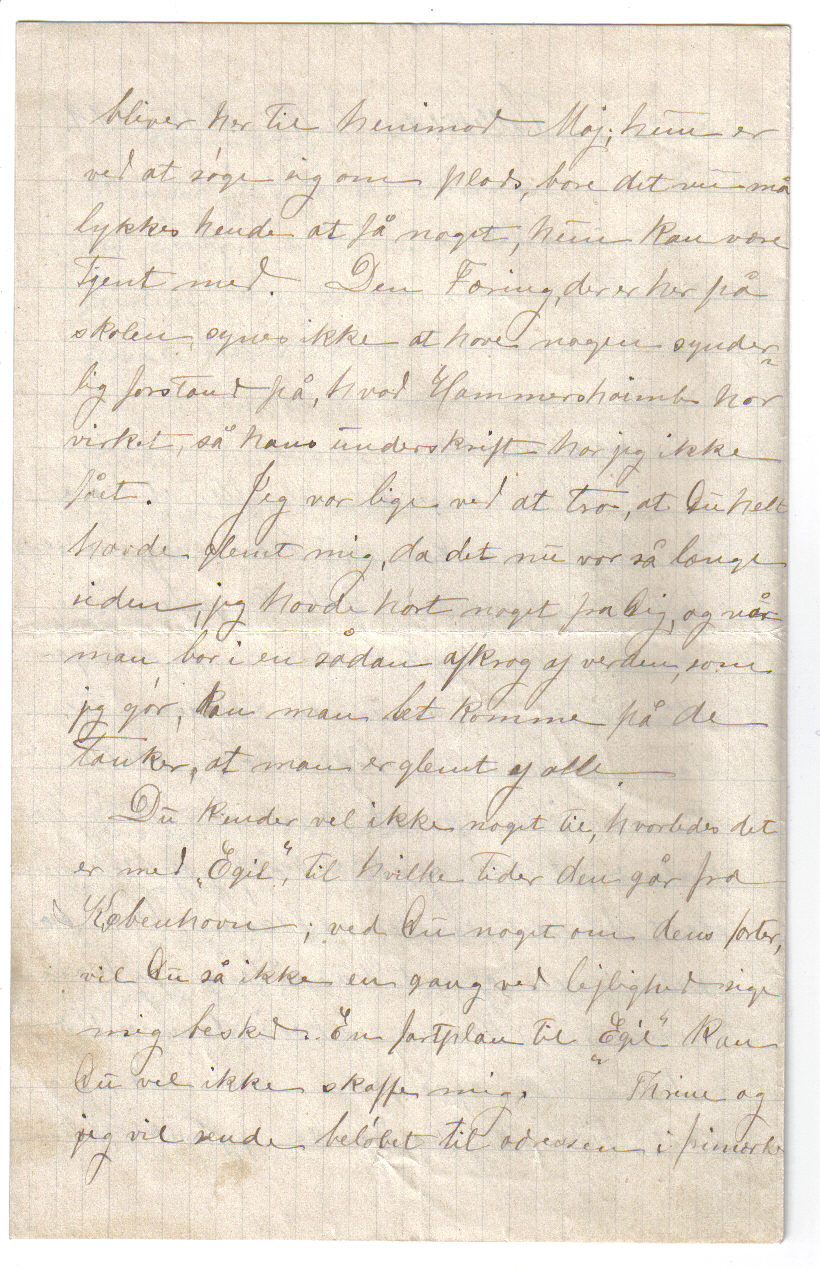 bliver her til henimod Maj; hun er
ved at søge sig om plads, bare det nu må
lykkes hende at få noget, hun kan være
tjent med. Den Færing, der er her på
skolen, synes ikke at have nogen synder-
lig forstand på, hvad Hammershaimb har
virket, så hans underskrift har jeg ikke
fået. Jeg var lige ved at tro, at Du helt
havde glemt mig, da det nu var så længe
siden, jeg havde hørt noget fra Dig, og når
man bor i en sådan afkrog af verden, som
jeg gør, kan man let komme på de
tanker, at man er glemt af alle.
Du kender vel ikke noget til, hvorledes det
er med „Egil“, til hvilke tider den går fra
København; ved Du noget om dens farter,
vil Du så ikke en gang ved lejlighed sige
mig besked. En fartplan til „Egil“ kan
Du vel ikke skaffe mig. Thrine og
jeg vil sende beløbet til adressen i frimærke